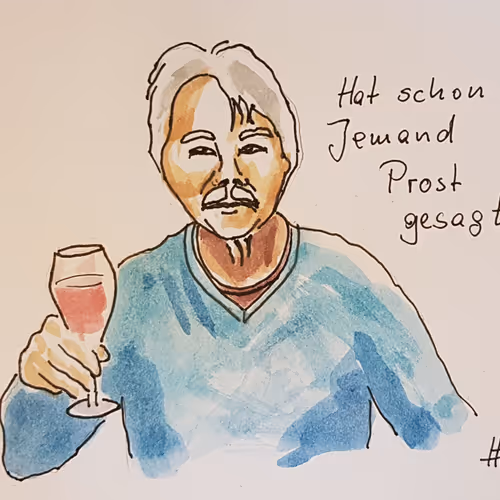 Hat schon
Jemand
Prost
gesagt
#